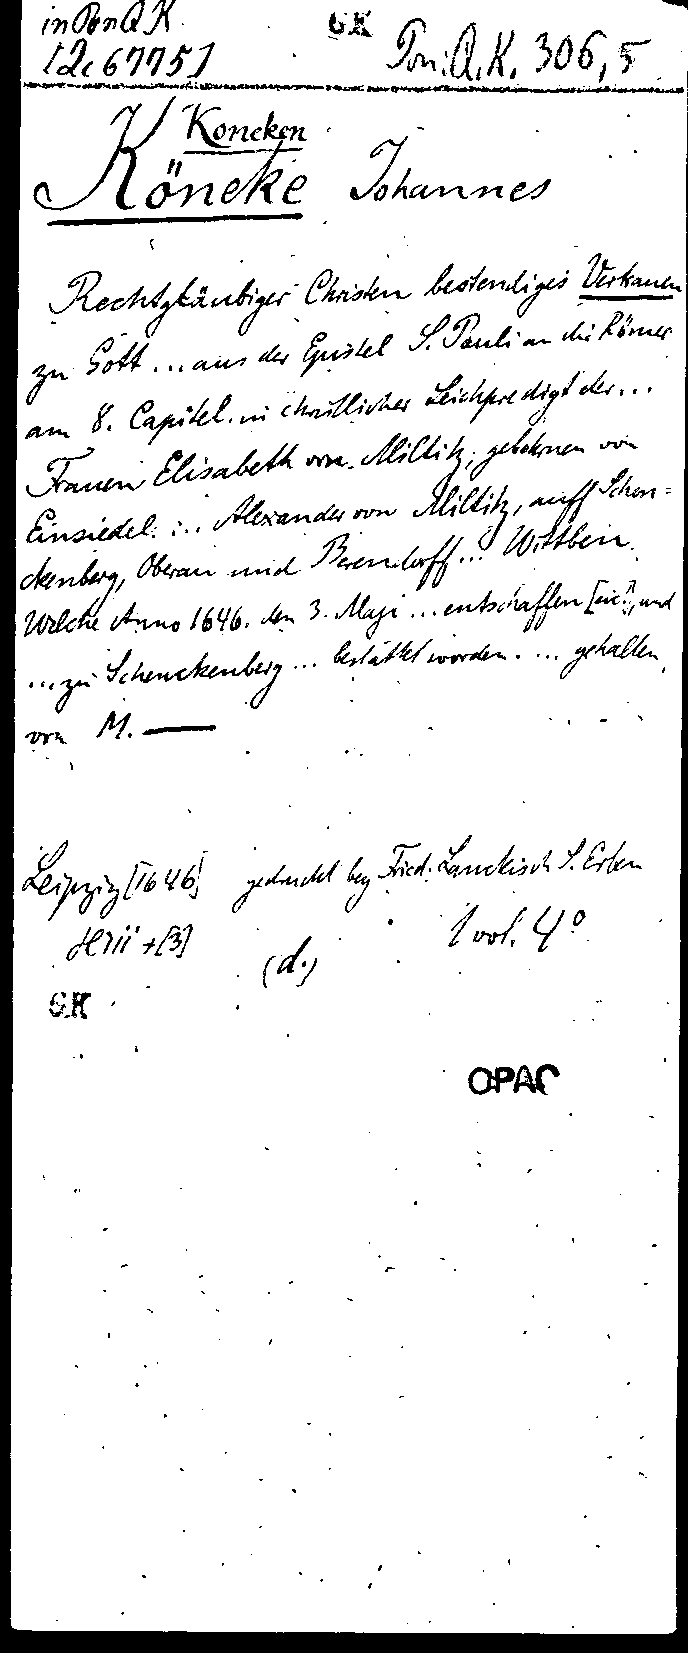 in Pon Q K
[2c 6775] GK Pon: Q. K. 306,5
Koncken
Köneke Johannes
Rechtgläubiger Christen bestendiges Vertrauen
zu Gott ... aus der Epistel S. Pauli an die Römer
am 8. Capitel. in christlicher Leichpredigt der ...
Frauen Elisabeth von Miltitz, gebohrnen von
Einsiedel ... Alexander von Miltitz, auff Schen-
ckenberg, Oberau und ... Wittben.
Welche Anno 1646. den 3. Maji ... entschaffen [sic!], und
... zu Schenckenberg ... bestättet worden. ... gehalten
von M. —
Leipzig [1646] gedruckt bey Fried. Lanckisch S. Erben
+[3] 1 vol. 4°
(d.)
GK
OPAC